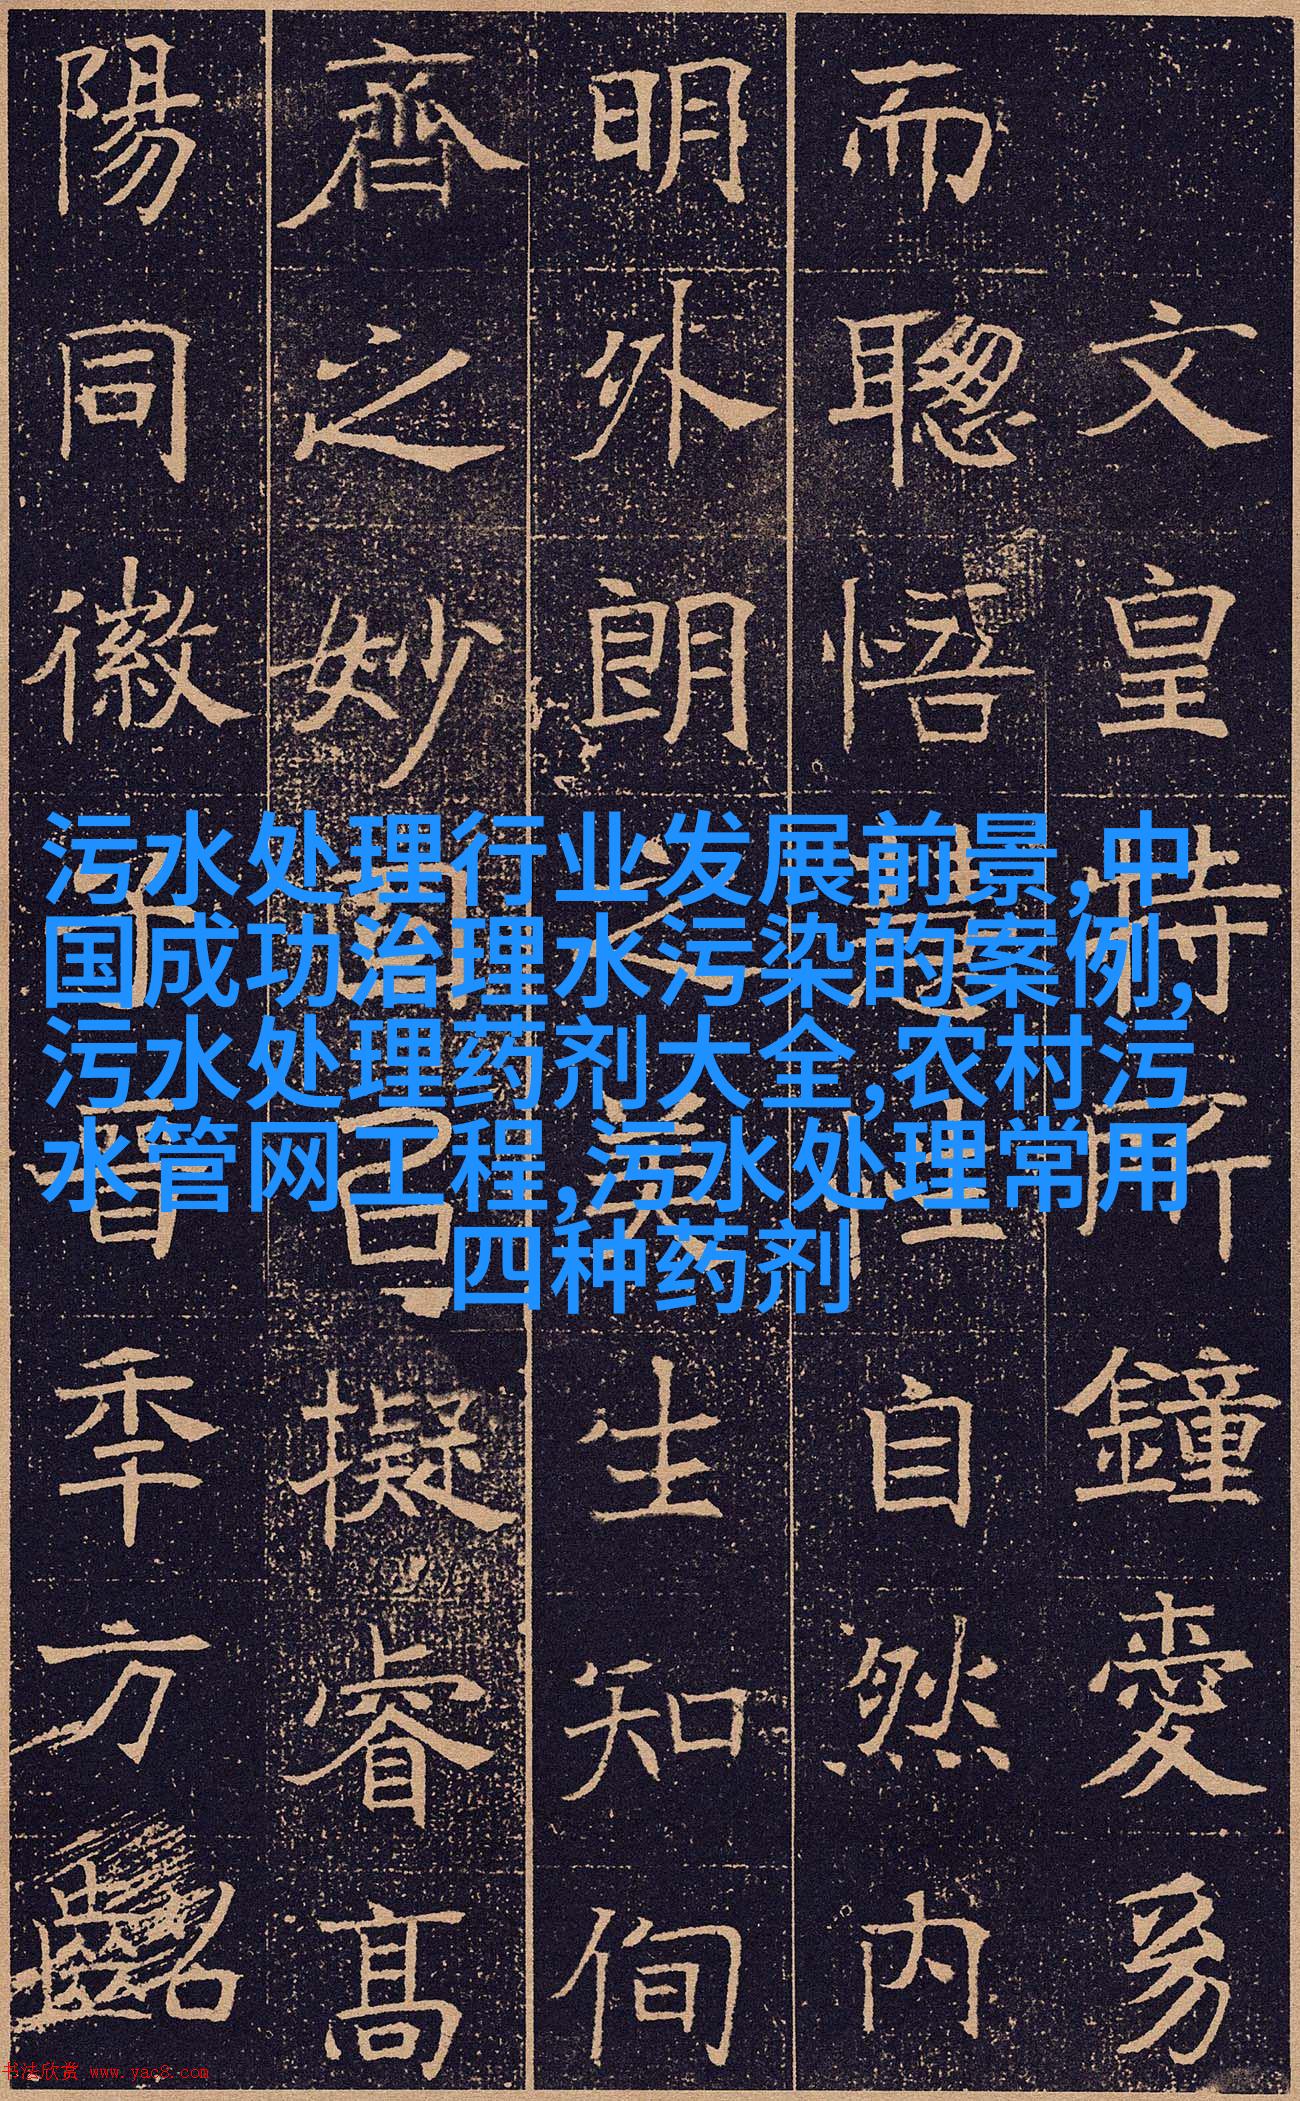 文皇特所鐘愛
而聰悟慧性自然内
明外朗之美生知侚
齊之妙固已擬睿高
陽同徽子晉季方齠
污水处理行业发展前景,中
国成功治理水污染的案例,
污水处理药剂大全,农村污
水管网工程,污水处理常用
四种药剂
书法欣赏 www.yac8.com